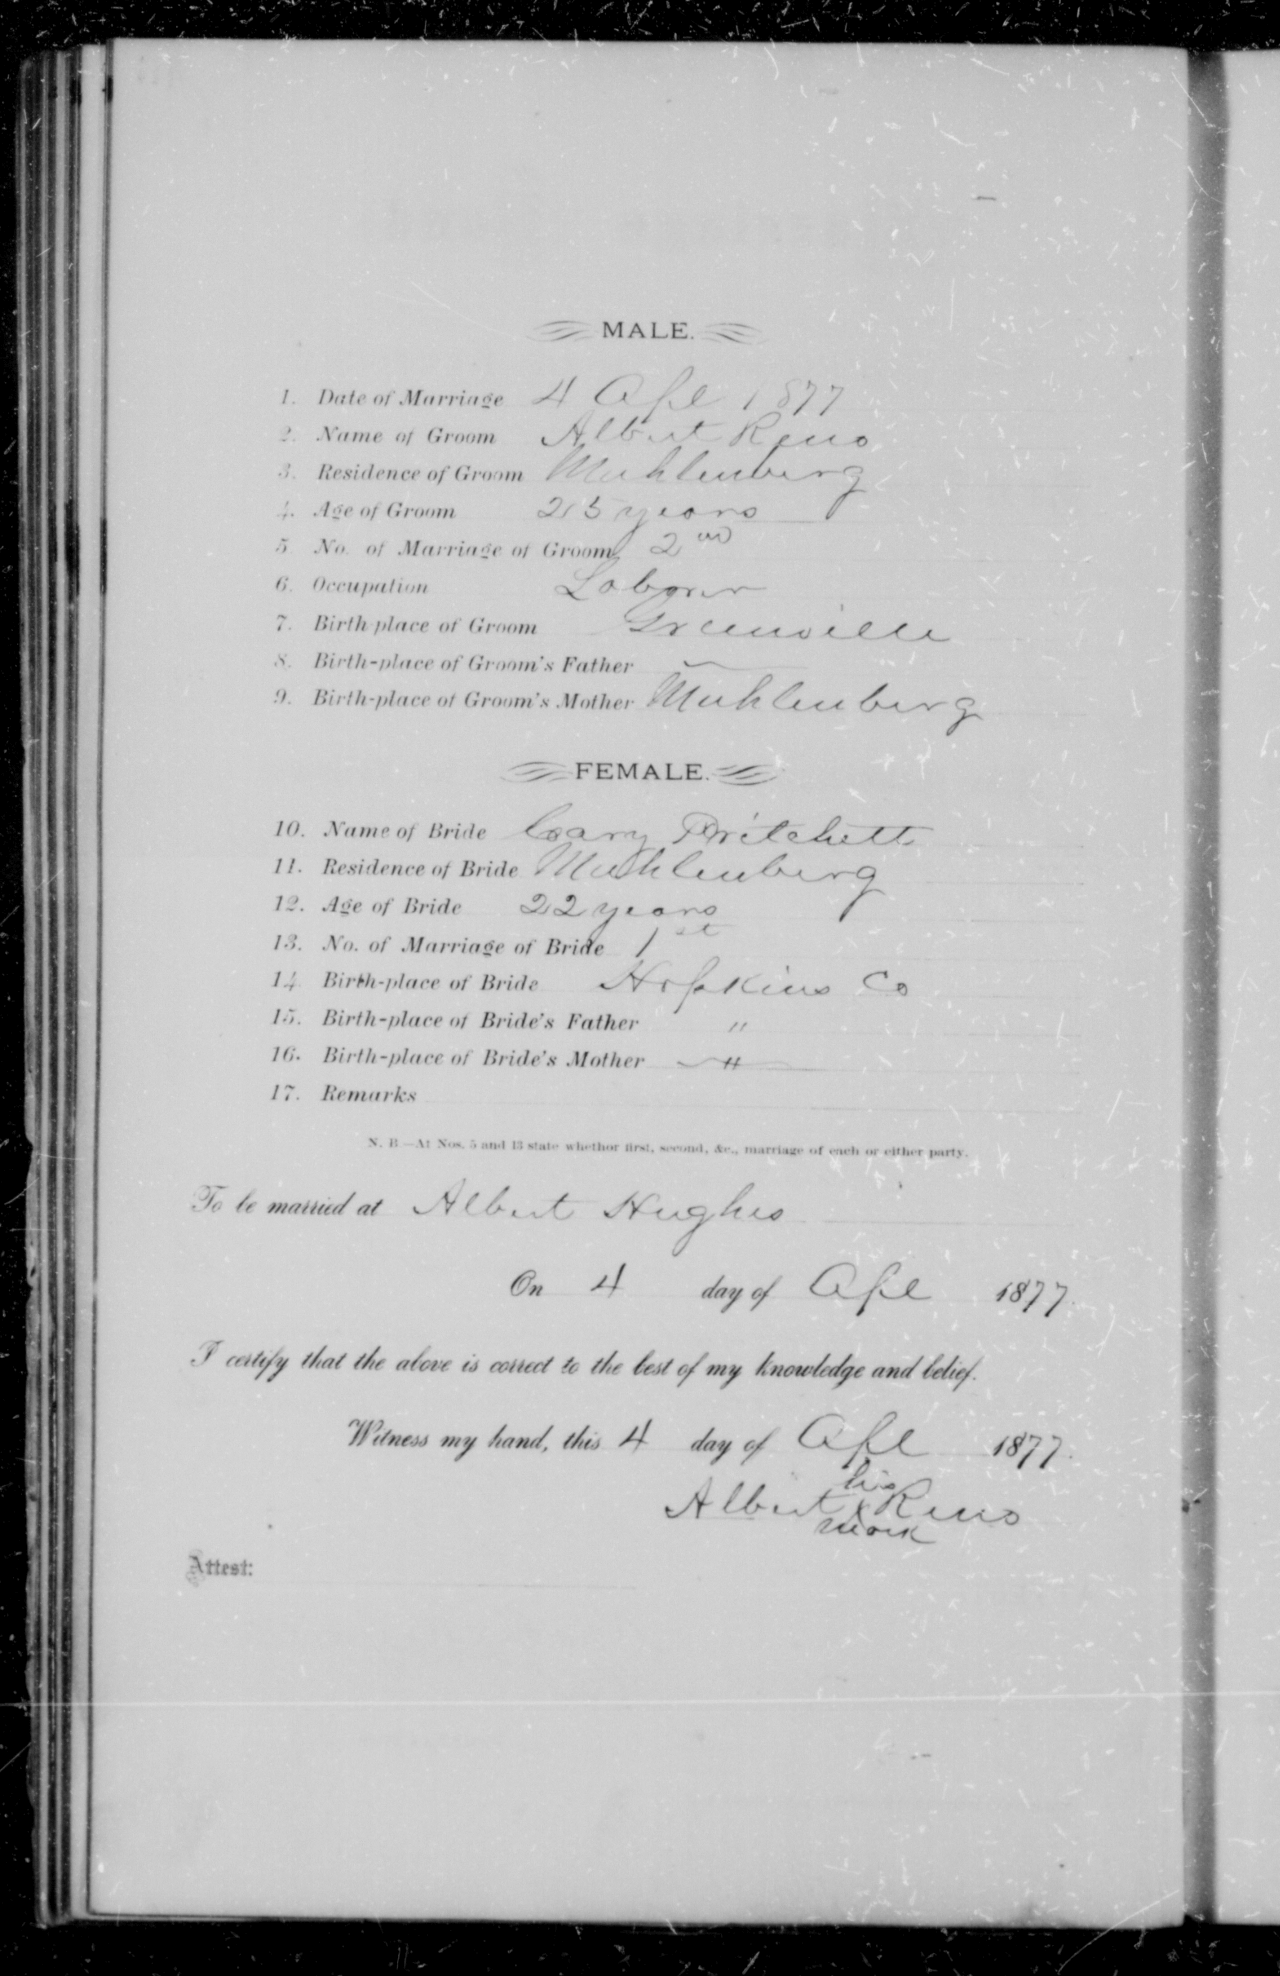 MALE.
1. Date of Marriage 4 Apl 1877
2. Name of Groom Albert Reno
3. Residence of Groom Muhlenberg
4. Age of Groom 25 years
5. No. of Marriage of Groom 2nd
6. Occupation Laborer
7. Birth-place of Groom Greenville
8. Birth-place of Groom's Father
9. Birth-place of Groom's Mother Muhlenberg
FEMALE.
10. Name of Bride Pritchett
11. Residence of Bride Muhlenberg
12. Age of Bride 22 years
13. No. of Marriage of Bride 1st
14. Birth-place of Bride Hopkins Co
15. Birth-place of Bride's Father "
16. Birth-place of Bride's Mother "
17. Remarks
N. B—At Nos. 5 and 13 state whether first, second, &c., marriage of each or either party.
To be married at Albert Hughes
On 4 day of Apl 1877.
I certify that the above is correct to the best of my knowledge and belief.
Witness my hand, this 4 day of Apl 1877.
his
Albert x Reno
mark
Attest: